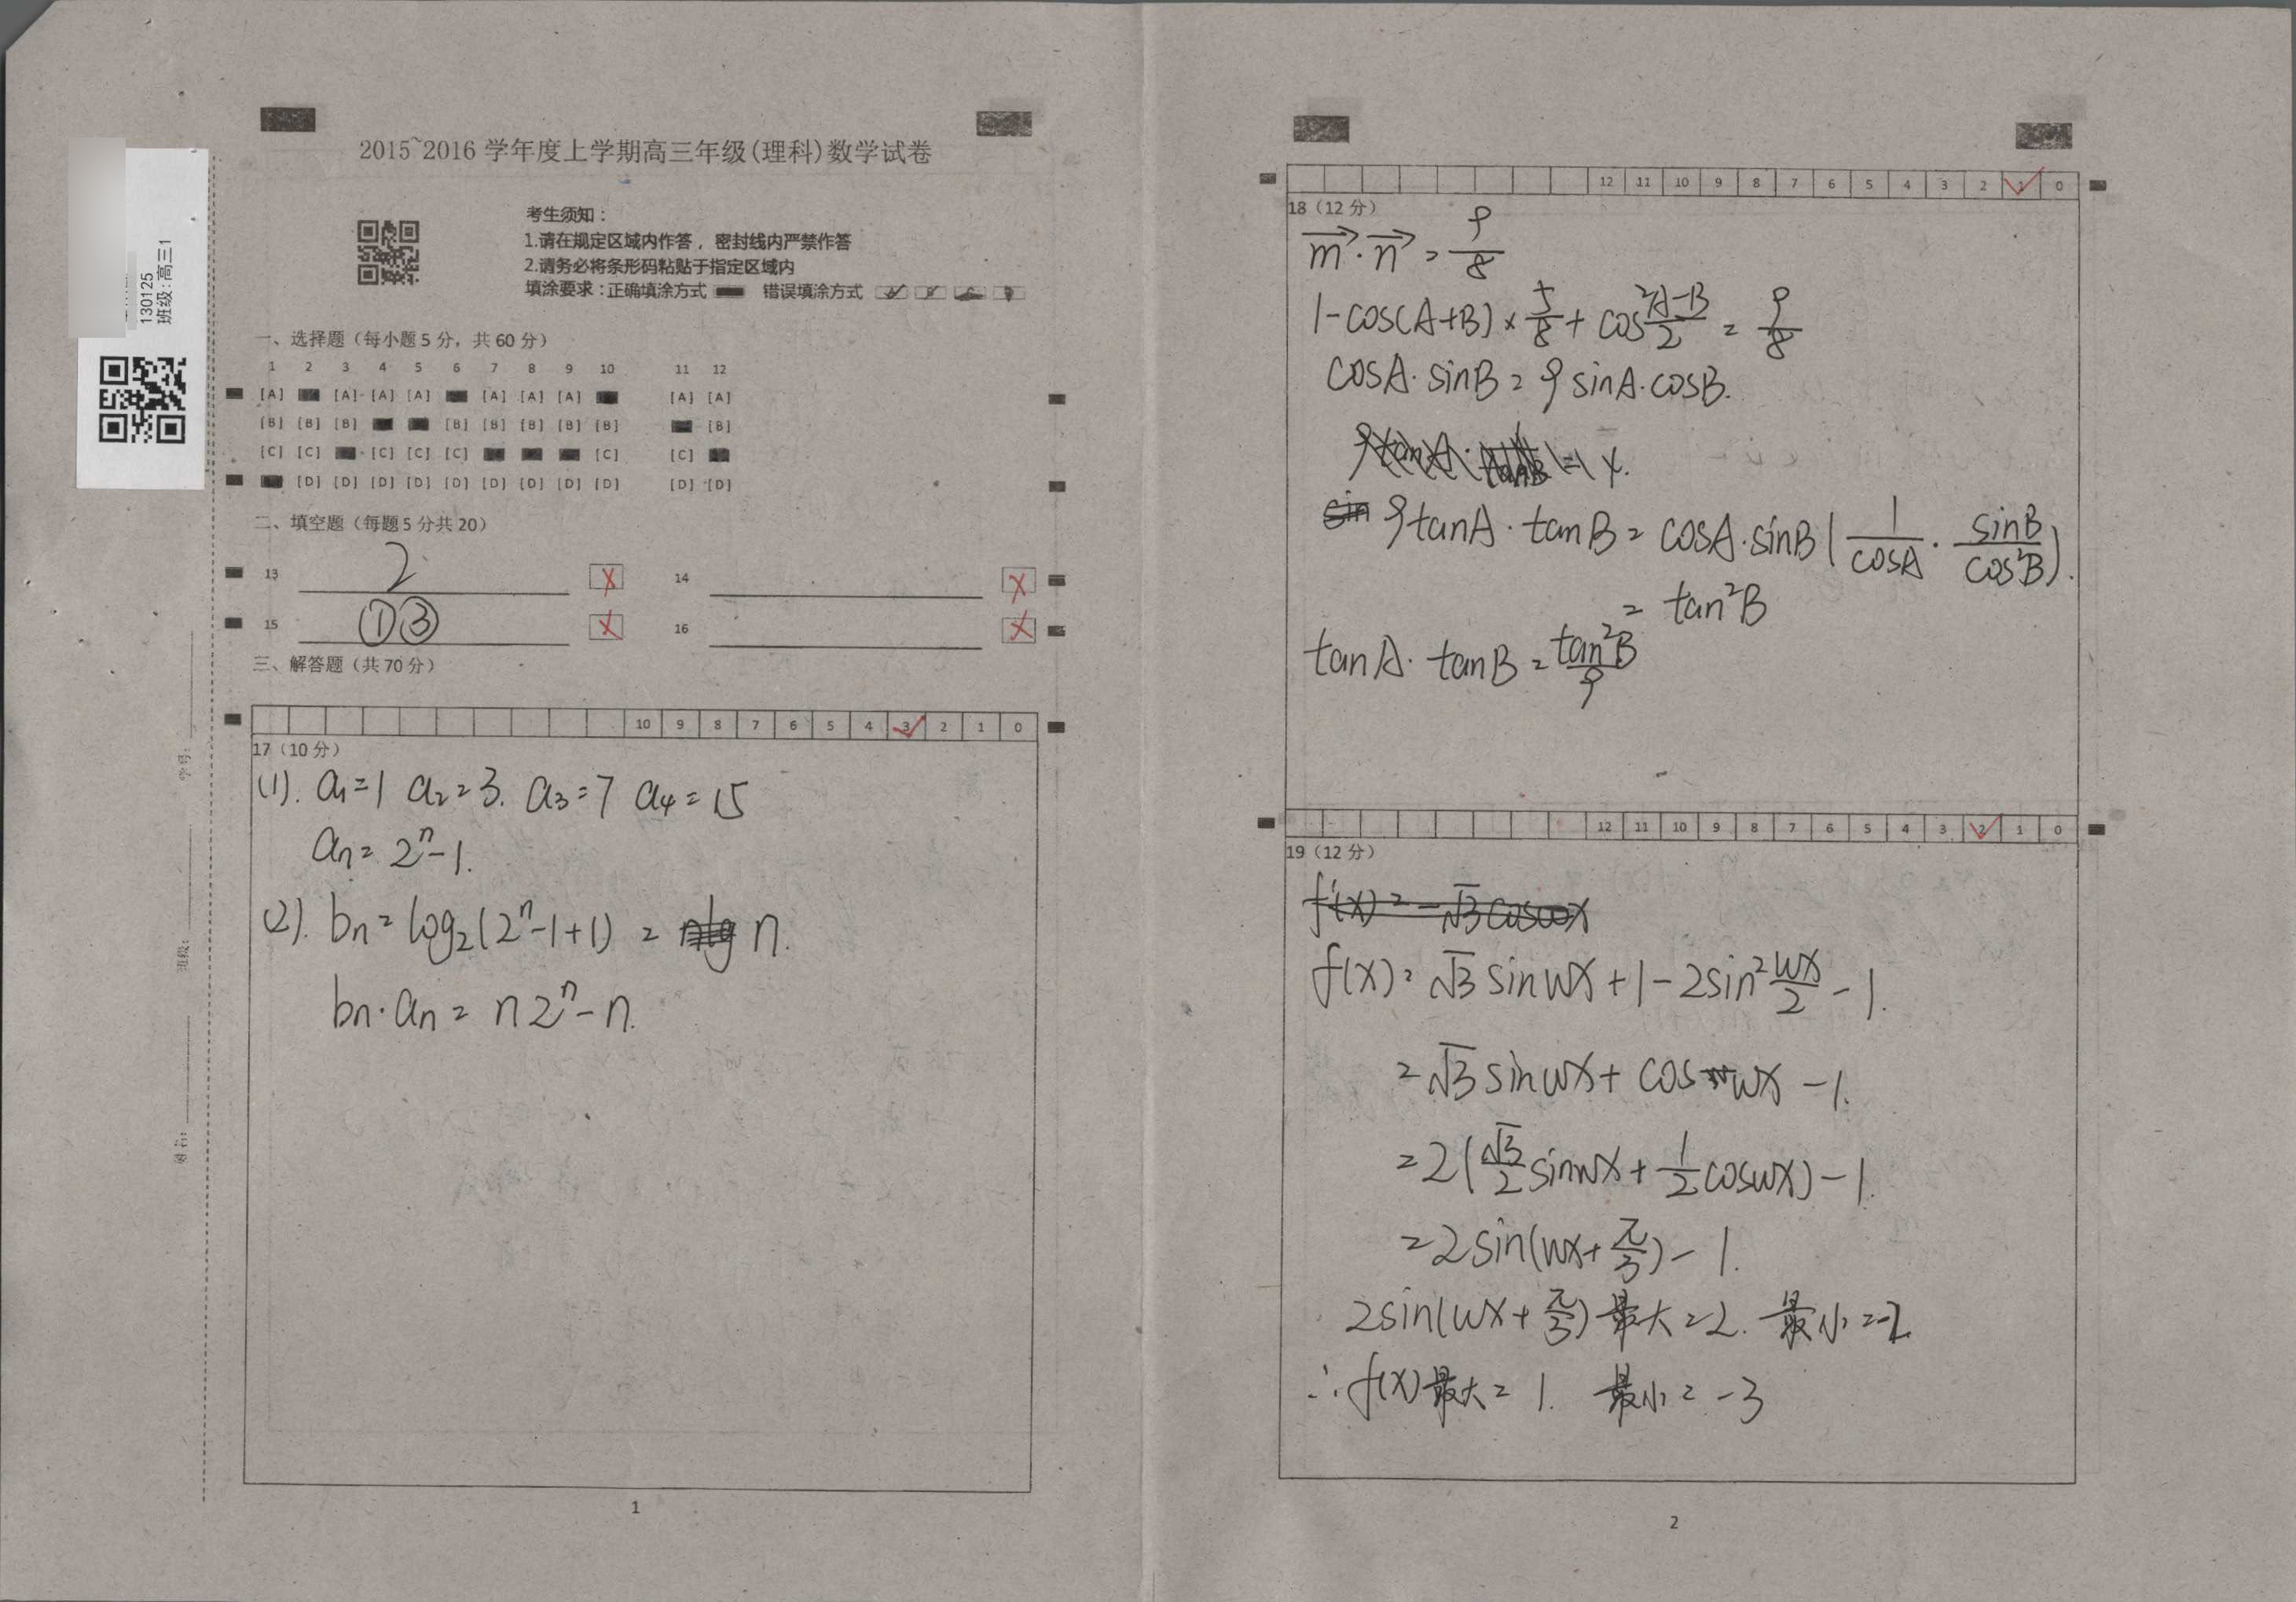 2015~2016 学年度上学期高三年级(理科)数学试卷
130125
班级:高三1
考生须知：
1.请在规定区域内作答，密封线内严禁作答
2.请务必将条形码粘贴于指定区域内
填涂要求：正确填涂方式 错误填涂方式
一、选择题（每小题5分，共60分）
1 2 3 4 5 6 7 8 9 10 11 12
[A] [A] [A] [A] [A] [A] [A] [A] [A]
[B] [B] [B] [B] [B] [B] [B] [B] [B]
[C] [C] [C] [C] [C] [C] [C]
[D] [D] [D] [D] [D] [D] [D] [D] [D] [D] [D]
二、填空题（每题5分共20）
13 2 14
15 ①③ 16
三、解答题（共70分）
10 9 8 7 6 5 4 3 2 1 0
17（10分）
(1). a₁=1 a₂=3. a₃=7 a₄=15
aₙ=2ⁿ-1.
(2). bₙ=log₂(2ⁿ-1+1) = n.
bₙ·aₙ = n2ⁿ-n.
学号：
班级：
姓名：
1
12 11 10 9 8 7 6 5 4 3 2 1 0
18（12分）
m·n=9/8
1-cos(A+B)×5/8+cos²(A-B)/2=9/8
cosA·sinB=9sinA·cosB.
9tanA·tanB=cosA·sinB(1/cosA·sinB/cos²B).
=tan²B
tanA·tanB=tan²B/9
12 11 10 9 8 7 6 5 4 3 2 1 0
19（12分）
f'(x)=-√3cosωx
f(x)=√3sinωx+1-2sin²ωx/2-1.
=√3sinωx+cosωx-1.
=2(√3/2sinωx+1/2cosωx)-1.
=2sin(ωx+π/3)-1.
2sin(ωx+π/3)最大=2. 最小=-2.
∴f(x)最大=1. 最小=-3
2